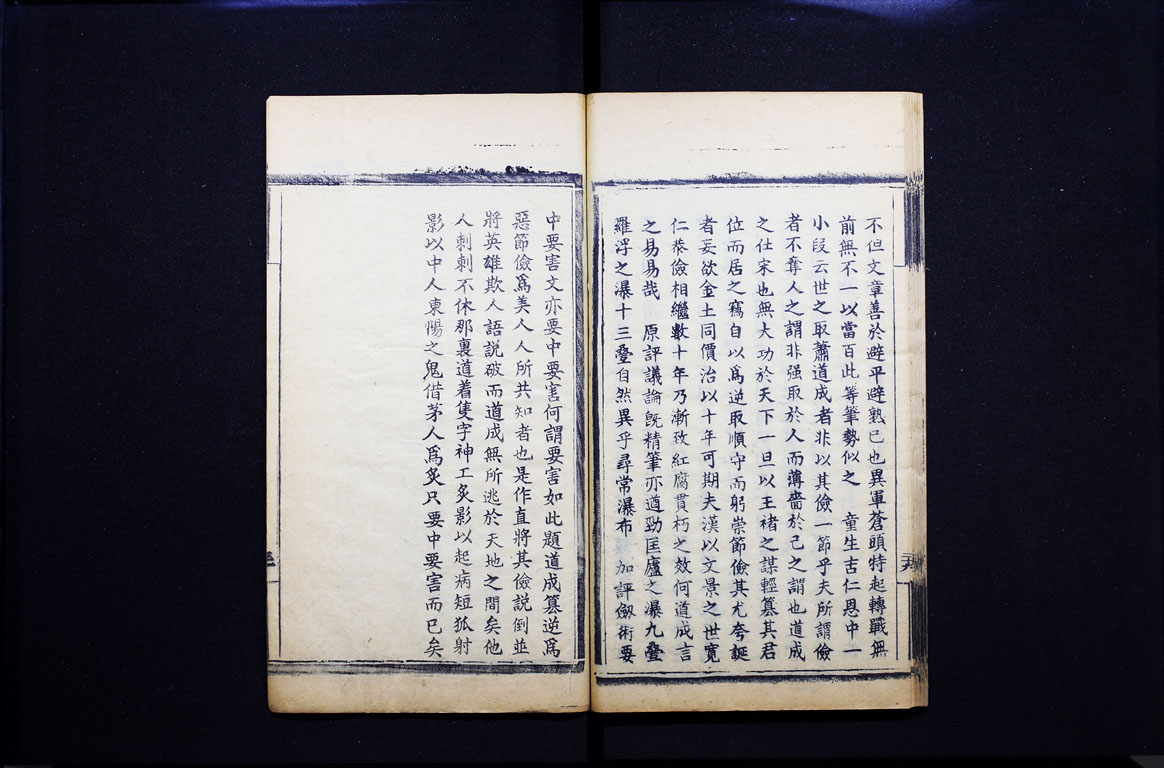 不但文章善於避平避熟已也異軍蒼頭特起轉戰無
前無不一以當百此等筆勢似之　童生吉仁恩中一
小段云世之取蕭道成者非以其儉一節乎夫所謂儉
者不奪人之謂非强取於人而薄嗇於己之謂也道成
之仕宋也無大功於天下一旦以王褚之謀輕簒其君
位而居之竊自以爲逆取順守而躬崇節儉其尤夸誕
者妄欲金土同價治以十年可期夫漢以文景之世寬
仁恭儉相繼數十年乃漸致紅腐貫朽之效何道成言
之易易哉　原評議論旣精筆亦遒勁匡廬之瀑九疊
羅浮之瀑十三疊自然異乎尋常瀑布　加評劒術要
中要害文亦要中要害何謂要害如此題道成簒逆爲
惡節儉爲美人人所共知者也是作直將其儉説倒並
將英雄欺人語説破而道成無所逃於天地之間矣他
人刺刺不休那裏道着隻字神工炙影以起病短狐射
影以中人東陽之鬼借茅人爲炙只要中要害而已矣